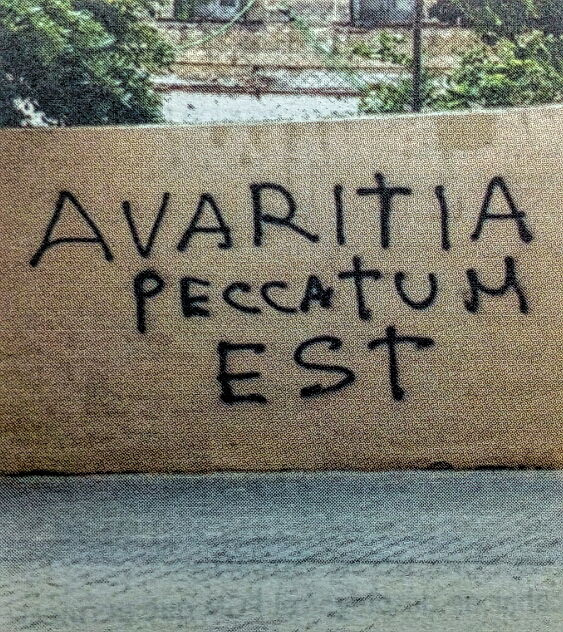 AVARITIA
PECCATUM
EST